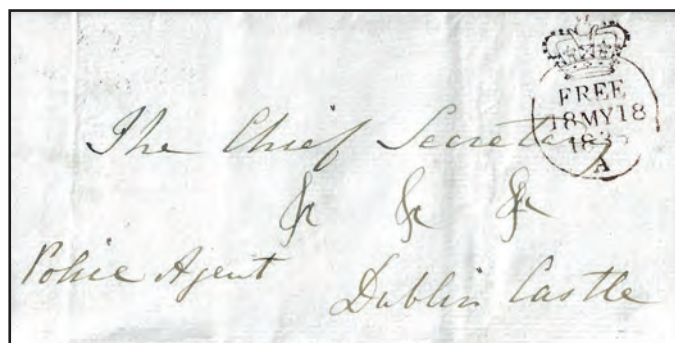 FREE
18MY18
183
A
The Chief Secretary
&c &c &c
Police Agent
Dublin Castle